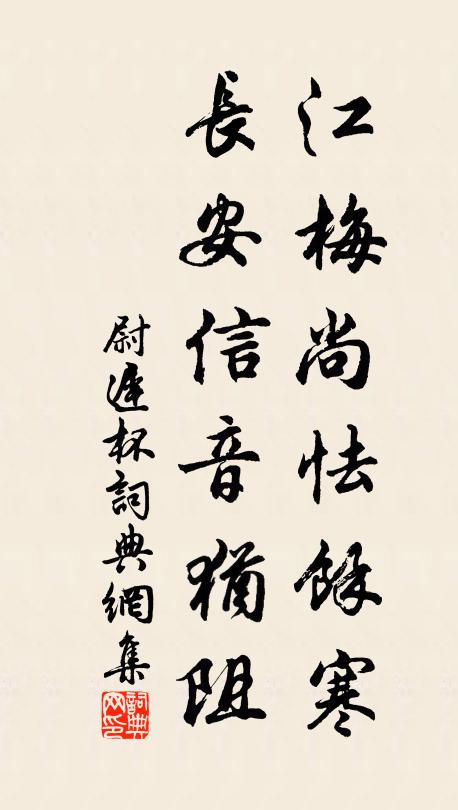 江梅尚怯餘寒
長安信音猶阻
尉遲杯詞典網集
詞典网印